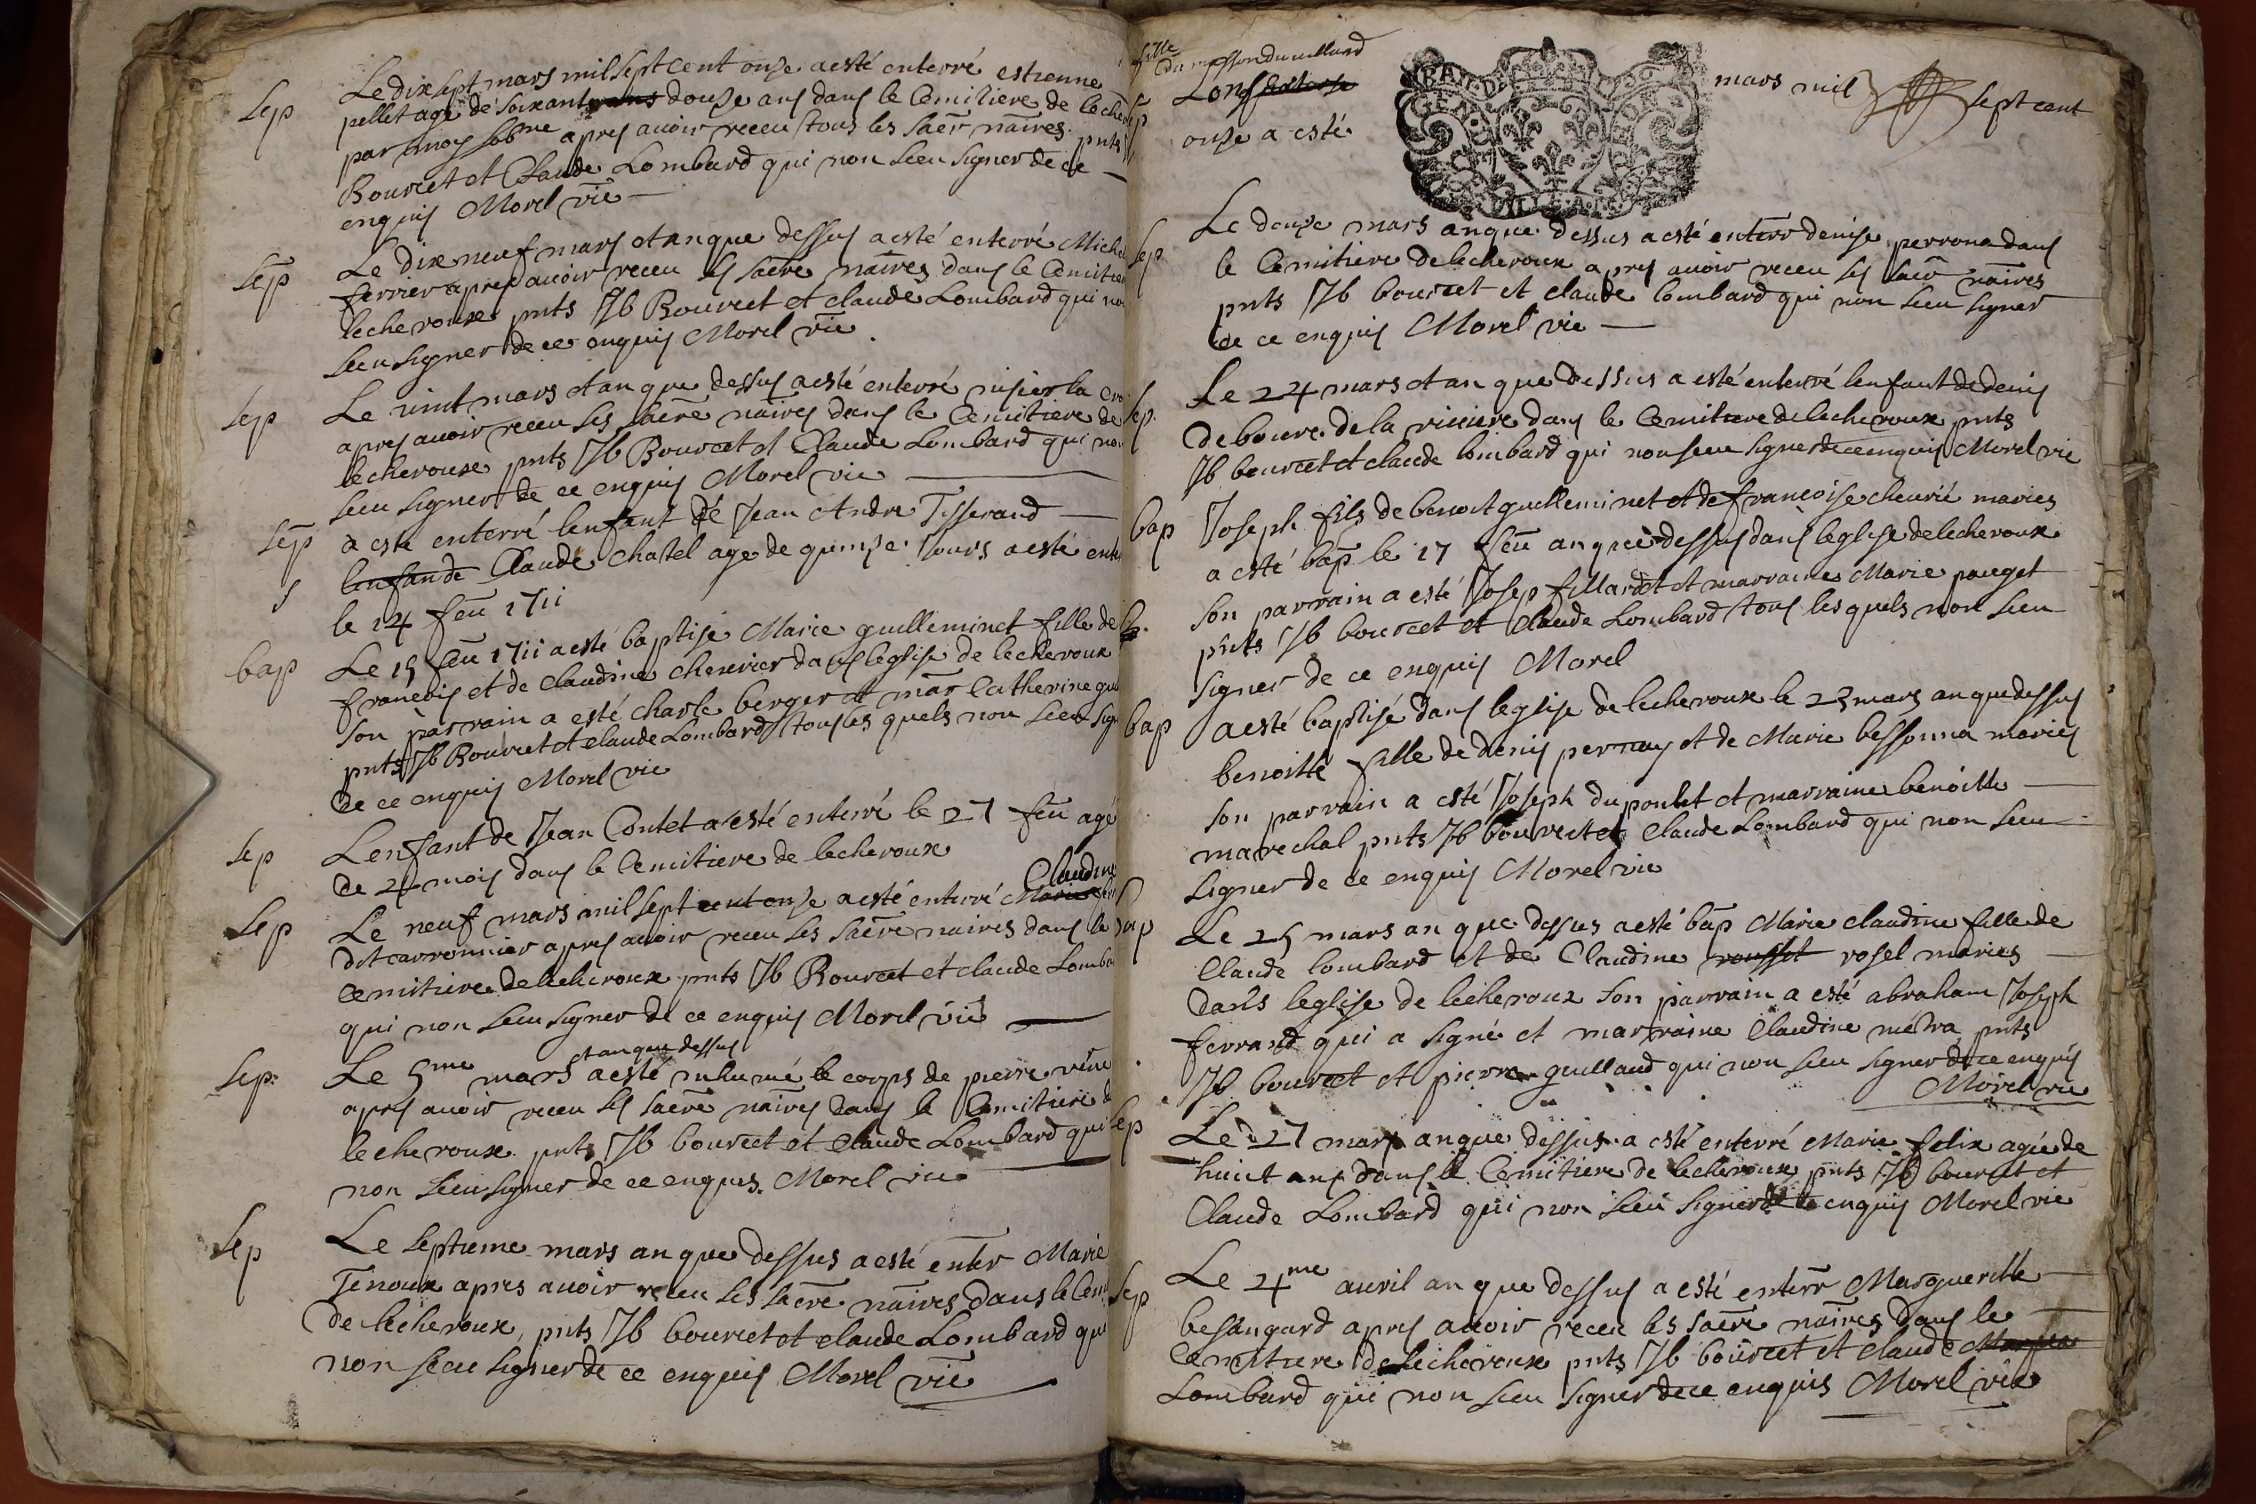 Sep Le dix sept mars mil sept cent onze a esté enterré estienne
pellet agé de soixante ans douze ans dans le Cemitiere de leche
par moy sobne apres avoir receu tous les sacr naires. pnts
Bourcet et Claude Lombard qui non sceu signer de ce
enquis Morel vie
Sep Le dix neuf mars et an que dessus a esté enterré Michel
ferrier apres avoir receu les sacre naires dans le Cemitier
lecheroux pnts Jb Bourcet et claude Lombard qui non
sceu signer de ce enquis Morel vie
Sep Le vint mars et an que dessus a esté enterré la
apres avoir receu les sacre naires dans le Cemitiere de
lecheroux pnts Jb Bourcet et Claude Lombard qui non
sceu signer de ce enquis Morel vie
Sep a esté enterré lenfant de Jean Andre Tisserand
S lenfan de Claude chatel age de quinze Jours a esté ente
le 14 feu 1711
bap Le 15 feu 1711 a esté baptise Marie guilleminet fille de
francois et de claudine chevrier dans leglise de lecheroux
son parrain a esté charle berger et mar Catherine gu
pnts Jb Bourcet et claude Lombard tous les quels non sceu sign
de ce enquis Morel vie
Sep Lenfant de Jean Contet a esté enterré le 27 feu agé
de 24 mois dans le Cemitiere de lecheroux
Claudine
Sep Le neuf mars mil sept cent onze a esté enterré Marie
dit carronnier apres avoir receu les sacre naires dans le
Cemitiere de lecheroux pnts Jb Bourcet et claude Lomba
qui non sceu signer de ce enquis Morel vie
et an que dessus
Sep Le 5me mars a esté inhumé le corps de pierre
apres avoir receu les sacre naires dans le Cemitiere d
lecheroux pnts Jb bourcet et Claude Lombard qui
non sceu signer de ce enquis. Morel vie
Sep Le septieme mars an que dessus a esté enter Marie
Tenoux apres avoir receu les sacre naires dans le Cemi
de lecheroux, pnts Jb bourcet et claude Lombard qui
non sceu signer de ce enquis Morel vie
fille
du villard
mars mil sept cent
onze a esté
GEN
Sep Le douze mars an que dessus a esté enterr denise perrona dans
le Cemitiere de lecheroux apres avoir receu les sacr naires
pnts Jb bourcet et claude lombard qui non sceu signer
de ce enquis Morel vie
Sep. Le 24 mars et an que dessus a esté enterré lenfant de denis
debourc de la riviere dans le Cemitiere de lecheroux pnts
Jb bourcet et claude lombard qui non sceu signer de ce enquis Morel vie
bap Joseph fils de benoit guilleminet et de francoise chevrié maries
a esté bap le 17 feu an que dessus dans leglise de lecheroux
son parrain a esté Josep fillardet et marraine Marie pauget
pnts Jb bourcet et Claude Lombard tous les quels non sceu
signer de ce enquis Morel
bap a esté baptisé dans leglise de lecheroux le 23 mars an que dessus
benoitte fille de denis pernay et de Marie bessonna maries
son parrain a esté Joseph du poulet et marraine benoitte
marechal pnts Jb bourcet et Claude Lombard qui non sceu
signer de ce enquis Morel vie
bap Le 25 mars an que dessus a esté bap Marie claudine fille de
Claude lombard et de Claudine rousset rosel maries
dans leglise de lecheroux son parrain a esté abraham Joseph
ferrand qui a signé et marraine Claudine métra pnts
Jb bourcet et pierre guillaud qui non sceu signer de ce enquis
Morel vie
Sep Le 27 mars an que dessus a esté enterré Marie felix agée de
huict ans dans le Cemitiere de lecheroux pnts Jb bourcet et
Claude Lombard qui non sceu signer de ce enquis Morel vie
Sep Le 4me avril an que dessus a esté enterr Margueritte
besangard apres avoir receu les sacre naires dans le
Cemitiere de lecheroux pnts Jb bourcet et claude
Lombard qui non sceu signer de ce enquis Morel vie